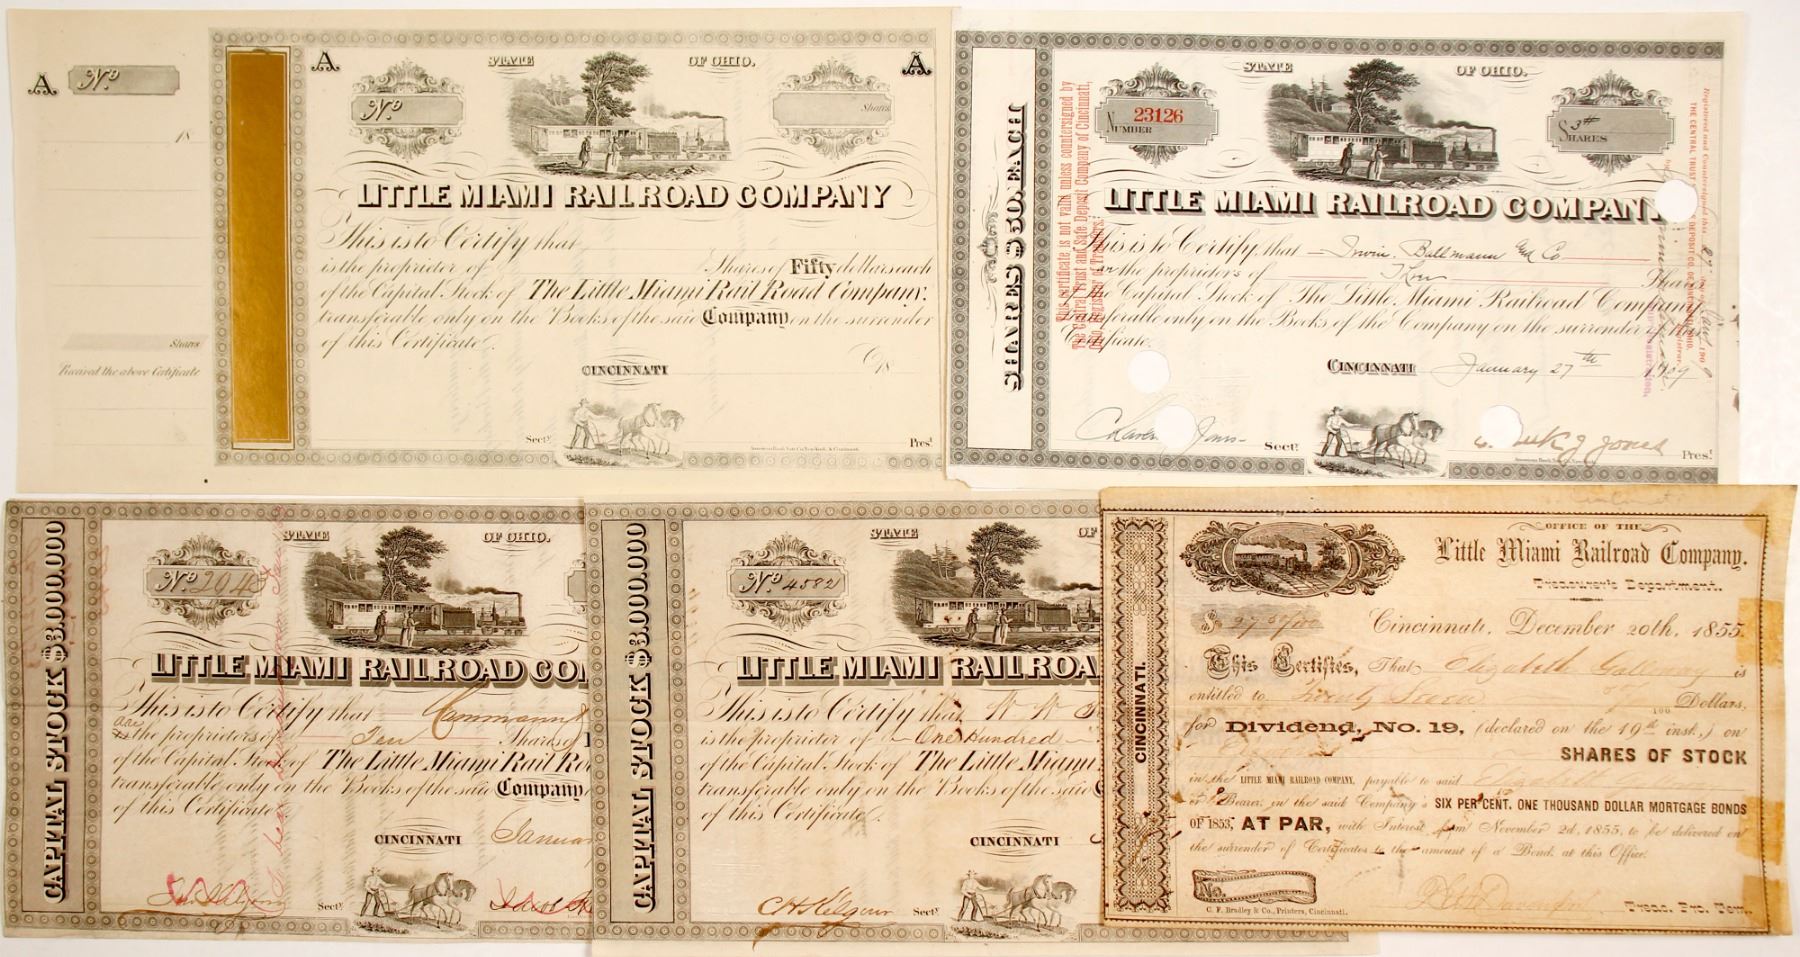 A
No
18
Shares
Received the above Certificate
A
A
STATE OF OHIO.
No
Shares
LITTLE MIAMI RAILROAD COMPANY
This is to Certify that
is the proprietor of Shares of Fifty dollars each
of the Capital Stock of The Little Miami Rail Road Company.
transferable only on the Books of the said Company on the surrender
of this Certificate.
CINCINNATI 18
Secty.
Prest.
SHARES $50. EACH
This certificate is not valid unless countersigned by
The Central Trust and Safe Deposit Company of Cincinnati,
Ohio, Register of Transfers.
STATE OF OHIO.
23126
NUMBER
3
SHARES
LITTLE MIAMI RAILROAD COMPANY
This is to Certify that Irwin, Ballmann and Co
are the proprietors of Shares
of the Capital Stock of The Little Miami Railroad Company
transferable only on the Books of the Company on the surrender of this
Certificate.
CINCINNATI January 27th 1909
Secty.
Jones
Prest.
Registered and Countersigned this
CAPITAL STOCK $3,000,000
STATE OF OHIO.
No 2043
LITTLE MIAMI RAILROAD CO
This is to Certify that
are the proprietors of Ten Shares of
of the Capital Stock of The Little Miami Rail Ro
transferable only on the Books of the said Company
of this Certificate.
CINCINNATI Januar
Secty.
CAPITAL STOCK $3,000,000
STATE OF
No 4582
LITTLE MIAMI RAILROA
This is to Certify that W. W.
is the proprietor of One Hundred
of the Capital Stock of The Little Miami
transferable only on the Books of the said
of this Certificate.
CINCINNATI
C H Kilgour Secty.
CINCINNATI.
OFFICE OF THE
Little Miami Railroad Company.
Treasurer's Department.
$ 27 50/100
Cincinnati, December 20th, 1855.
This Certifies, That Elizabeth Galloway is
entitled to Twenty Seven 50/100 Dollars,
for Dividend, No. 19, (declared on the 19th inst.,) on
SHARES OF STOCK
in the LITTLE MIAMI RAILROAD COMPANY, payable to said Elizabeth Galloway
or Bearer, in the said Company's SIX PER CENT. ONE THOUSAND DOLLAR MORTGAGE BONDS
OF 1853, AT PAR, with Interest from November 2d, 1855, to be delivered on
the surrender of Certificates to the amount of a Bond, at this Office.
No.
C. F. Bradley & Co., Printers, Cincinnati.
Treas. Pro. Tem.